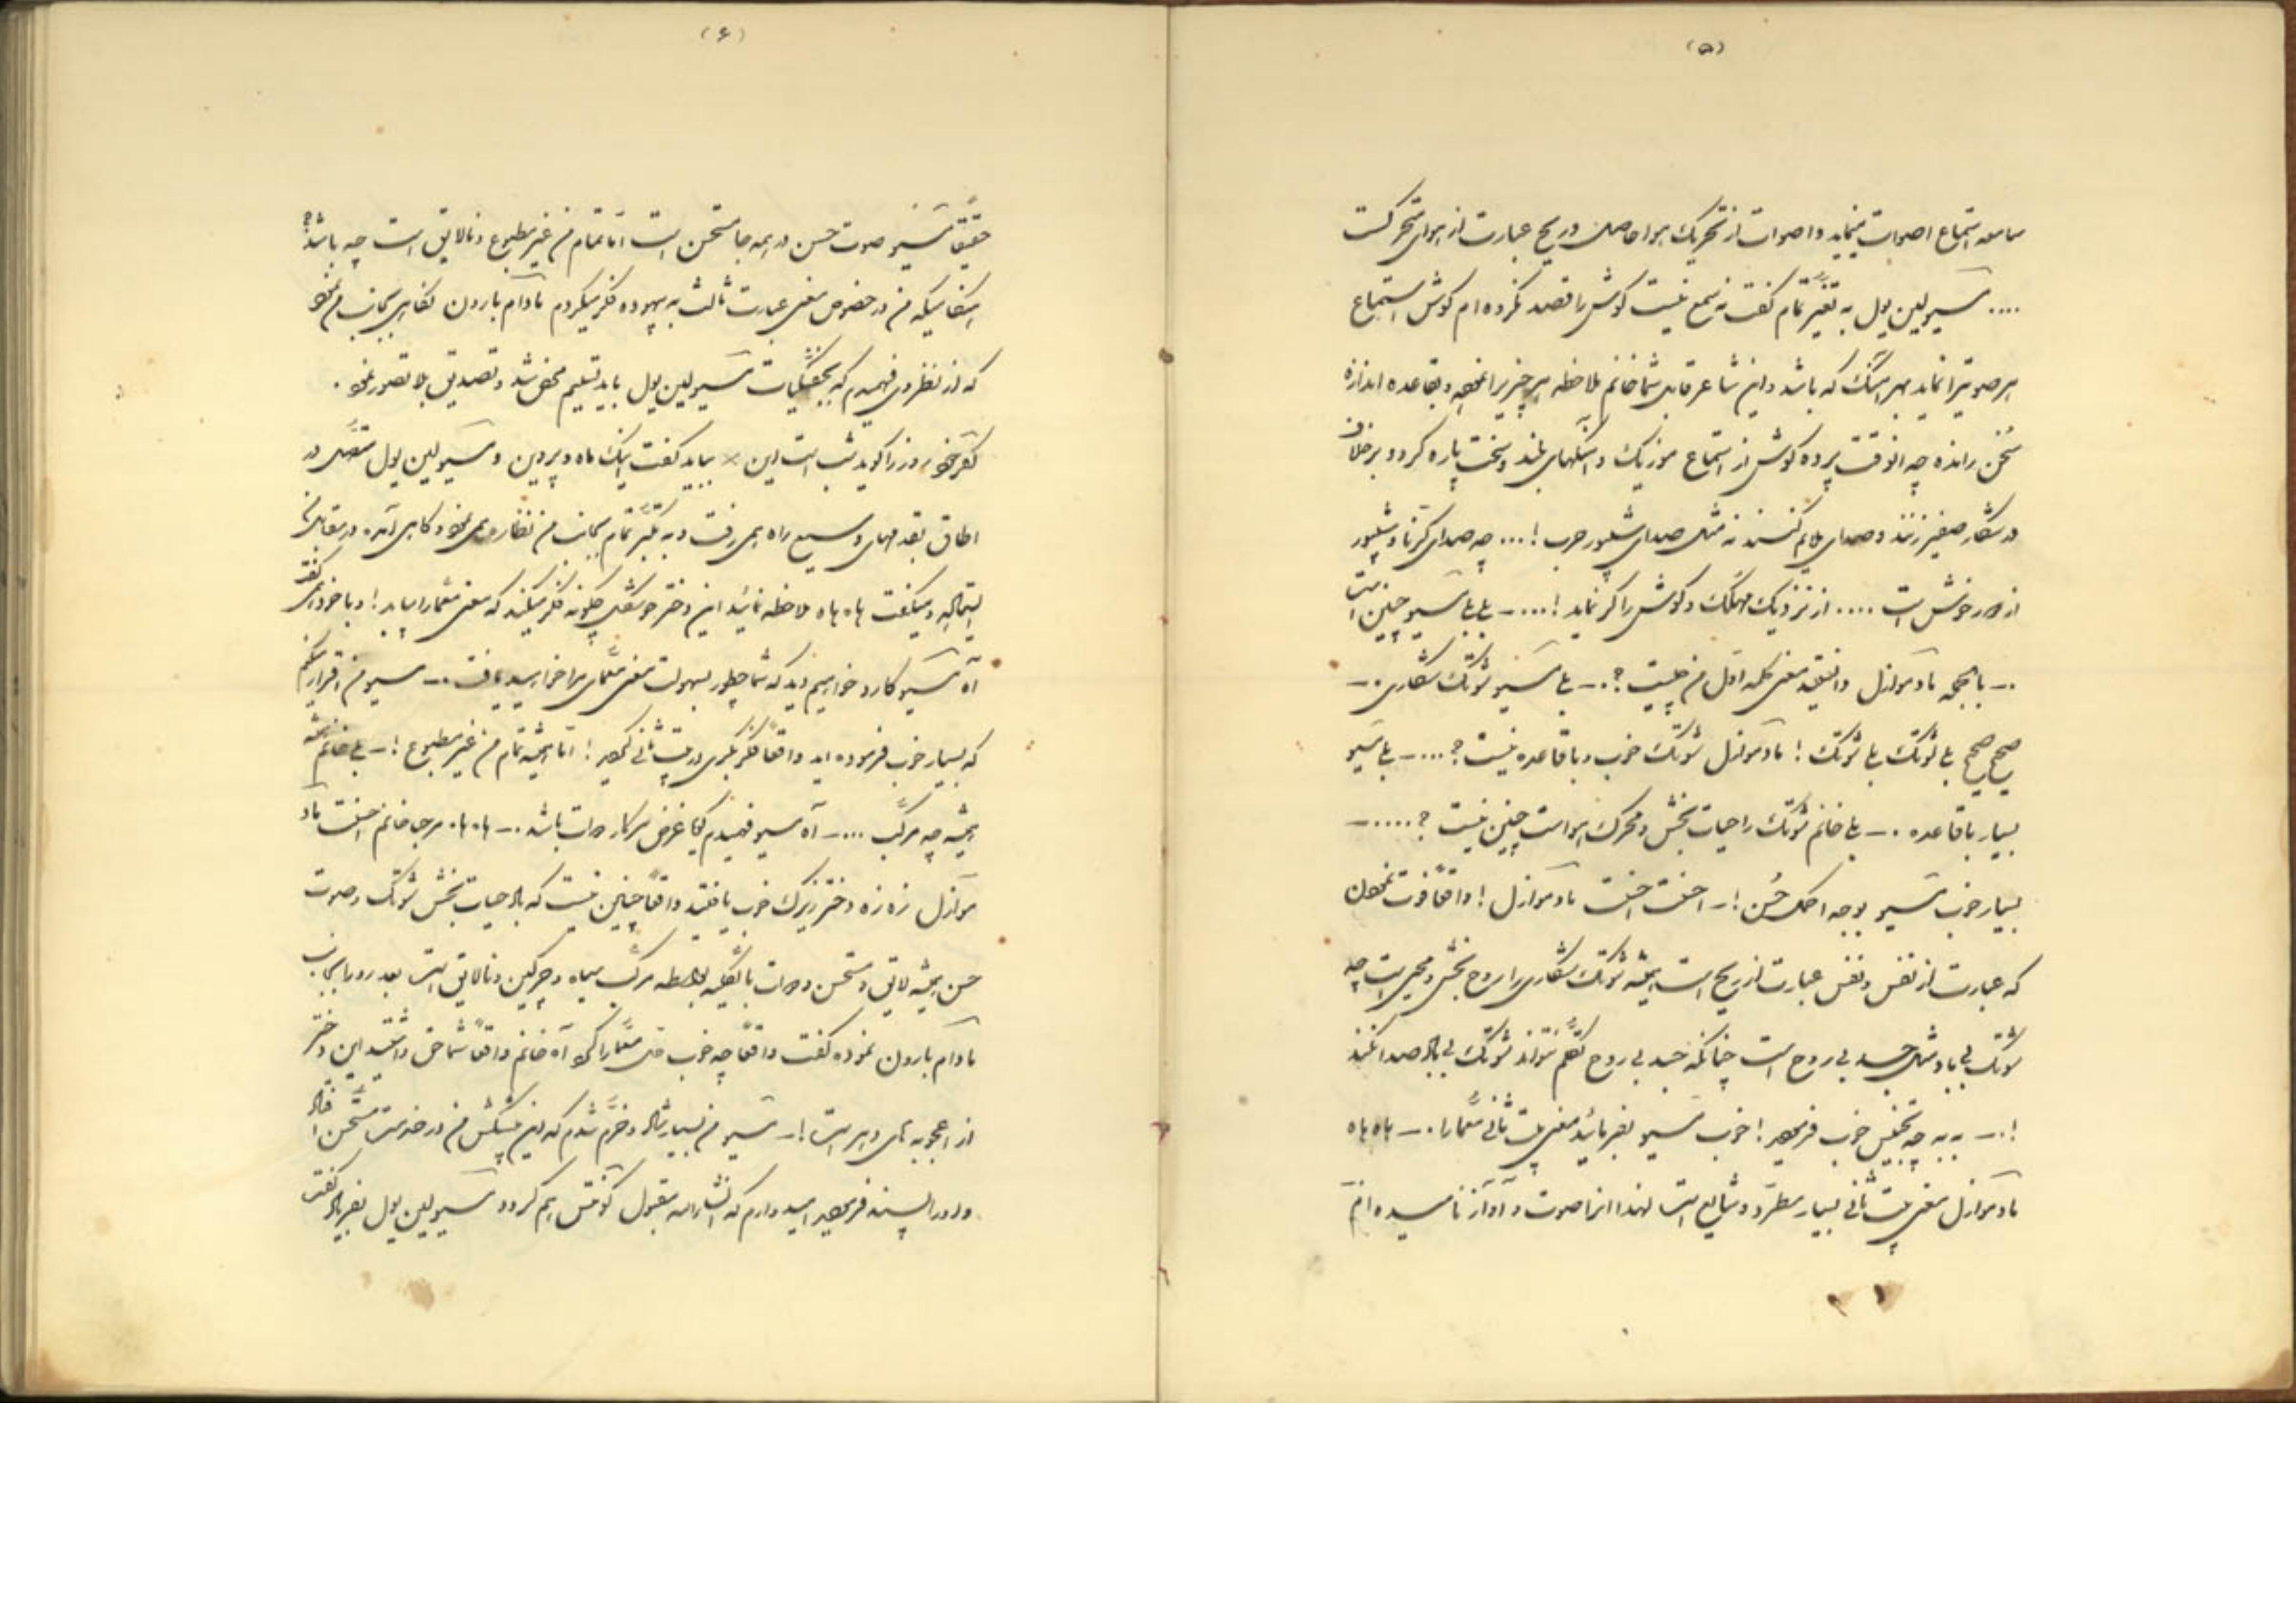 (۵)
سامعه استماع اصوات مینماید و اصوات از تحریک هوا حاصل و ریح عبارت از هوای متحرکست
.... مسیو لین پول به تغیّر تمام گفت نه سمع نیست گوش را قصد نکرده ام گوش استماع
هر صوتیرا نماید بهر آهنگ که باشد و این شاعر قابل شما خانم ملاحظه هر چیز را نموده و بقاعده اندازه
سُخن رانده چه انوقت پرده گوش از استماع موزیک و آهنگهای بلند و سخت پاره گردد برخلاف
در شکار صفیر زنند و صدای ملایم کنند نه مثل صدای شیپور حرب !... چه صدای کرنا و شیپور
از دور خوش است .... از نزدیک مهلک و گوش را کر نماید !.... – بلی بلی مسیو چنین است
.– باالجمله مادموازل دانستید معنی کلمه اوّل من چیست ؟.– بلی مسیو شوتک شکاری .–
صحیح صحیح بلی شوتک بلی شوتک ! مادموازل شوتک خوب و باقاعده نیست ؟....– بلی مسیو
بسیار باقاعده .– بلی خانم شوتک را حیات بخش و محرک هواست چنین نیست ؟.....–
بسیار خوب مسیو بوجه احسن !– احسنت احسنت مادموازل ! واقعاً فوت نمودن
که عبارت از نفس و نفس عبارت از ریح است همیشه شوتک شکاری را روح بخش و محیی است چه
شوتک بی باد مثل جسد بی روح است چنانکه جسد بی روح تکلّم نتواند شوتک بی باد صدا نکند
!.– به به چه تجنیس خوب فرمودید ! خوب مسیو بفرمائید معنی بیت ثانی معمّا را .– هاه هاه
مادموازل معنی بیت ثانی بسیار مطرّد و شایع است لهذا انرا صوت و آواز نامیده ام
(۶)
حقیقةً مسیو صوت حسن در همه جا مستحسن است امّا تمام من غیر مطبوع و نالایق است چه باشد؟
هنگامیکه من در خصوص معنی عبارت ثالث به بیهوده فکر میکردم مادام بارون نگاهی بجانب من نمود
که از نظر وی فهمیدم که بتحقیقات مسیو لین پول باید تسلیم محض شد و تصدیق بلا تصور نمود .
اگر خود روز را گوید شب است این × بباید گفت اینک ماه و پروین و مسیو لین پول متصّل در
اطاق بقدمهای وسیع راه همی رفت و به تکبّر تمام بجانب من نظاره همی نمود و گاهی آمده در مقابل من
ایستاده و میگفت هاه هاه ملاحظه نمائید این دختر خوشگل چگونه فکر میکند که معنی معمّا را بیابد ! و با خود همی گفت
آه مسیو کارو خواهیم دید که شما چطور بسهولت معنی معمّای مرا خواهید یافت .– مسیو من اقرار میکنم
که بسیار خوب فرموده اید واقعاً فکر بکری در بیت ثانی نمودید ! امّا همیشه تمام من غیر مطبوع !– بلی خانم همیشه
همیشه چه مرکّب ....– آه مسیو فهمیدم گویا غرض سرکار دوات باشد .– هاه هاه مرحبا خانم احسنت ماد
موازل زه زه دختر زیرک خوب یافتید واقعاً چنین نیست که باد حیات بخش شوتک و صوت
حسن همیشه لایق و مستحسن و دوات بالکلیّه بواسطه مرکّب سیاه و چرکین و نالایق است بعد رو را بجانب
مادام بارون نموده گفت واقعاً چه خوب حل معمّا را نمود آه خانم واقعاً شما حق داشتید این دختر
از اعجوبه های دهر است !– مسیو من بسیار شاد و خرّم شدم که این پیشکش من در خدمتت مستحسن افتاد
و او را پسند فرمودید امیدوارم که انشاءالله مقبول کونتس هم گردد مسیو لین پول بفریاد گفت